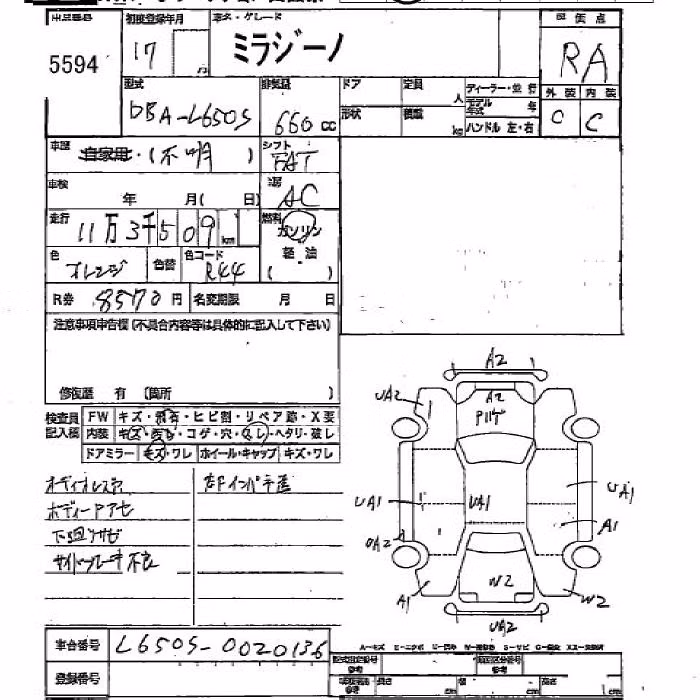 初度登録年月 車名・グレード 評価点
5594 17 ミラジーノ RA
型式 排気量 ドア 定員 ディーラー・並行 外装 内装
人 モデル年式 年
DBA-L650S 660 cc 形状 積載 kg ハンドル 左・右 0 C
車歴 自家用・(不明) シフト FAT
車検 年 月( 日) 冷房 AC
走行 11万3千509 km 燃料 ガソリン
色 オレンジ 色替 色コード R44 軽油 ( )
R券 8570円 名変期限 月 日
注意事項申告欄(不具合内容等は具体的に記入して下さい)
修復歴 有 (箇所 )
検査員記入欄 FW キズ・飛石・ヒビ割・リペア跡・X要
内装 キズ・汚れ・コゲ・穴・スレ・ヘタリ・破レ
ドアミラー キズ・ワレ ホイール・キャップ キズ・ワレ
オーディオレス
ボディーアアセ
下廻りサビ
サイドブレーキ不良
A2
UA2 A2 Pハゲ
UA1 UA1 UA1
A1
UA2
A1 W2 W2
UA2
車台番号 L650S-0020136
登録番号
型式指定番号 類別区分番号
長さ cm 幅 cm 高さ cm